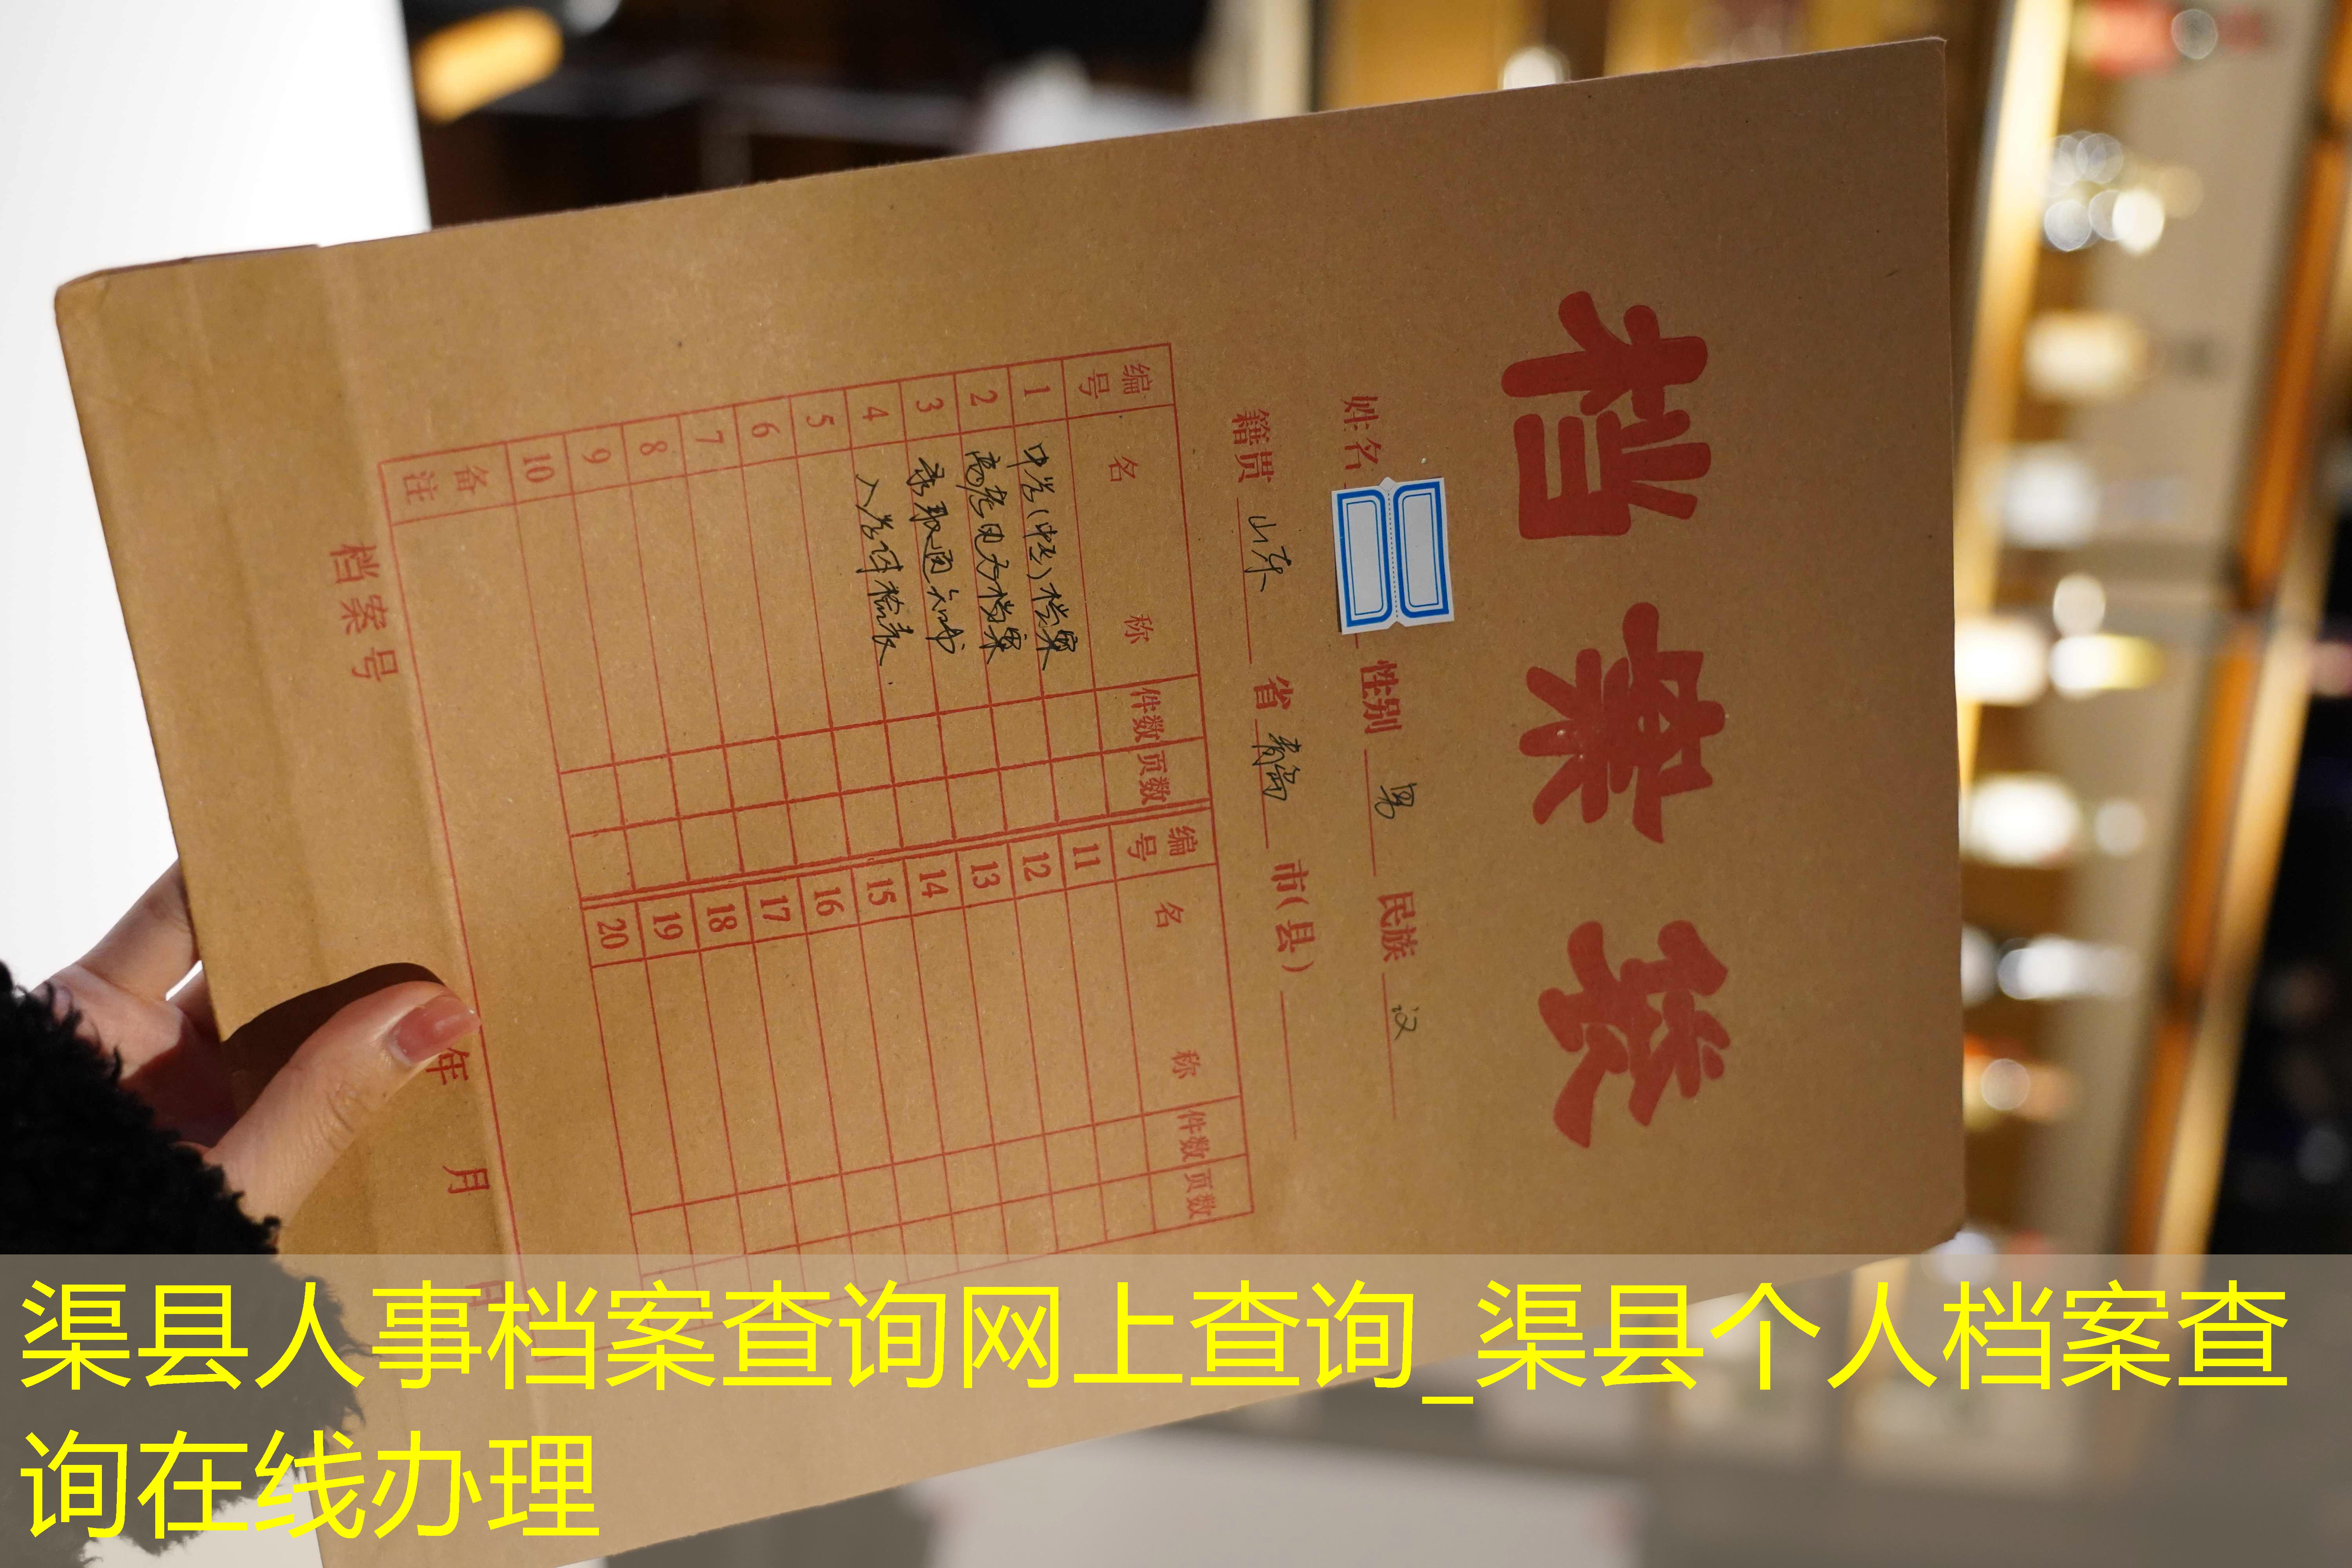 档案袋
姓名 性别 男 民族 汉
籍贯 山东 省 青岛 市(县)
编号 名称 件数 页数 编号 名称 件数 页数
1 中学(中专)档案 11
2 高考电子档案 12
3 录取通知书 13
4 入学体检表 14
5 15
6 16
7 17
8 18
9 19
10 20
备注
档案号 年 月 日
渠县人事档案查询网上查询_渠县个人档案查
询在线办理